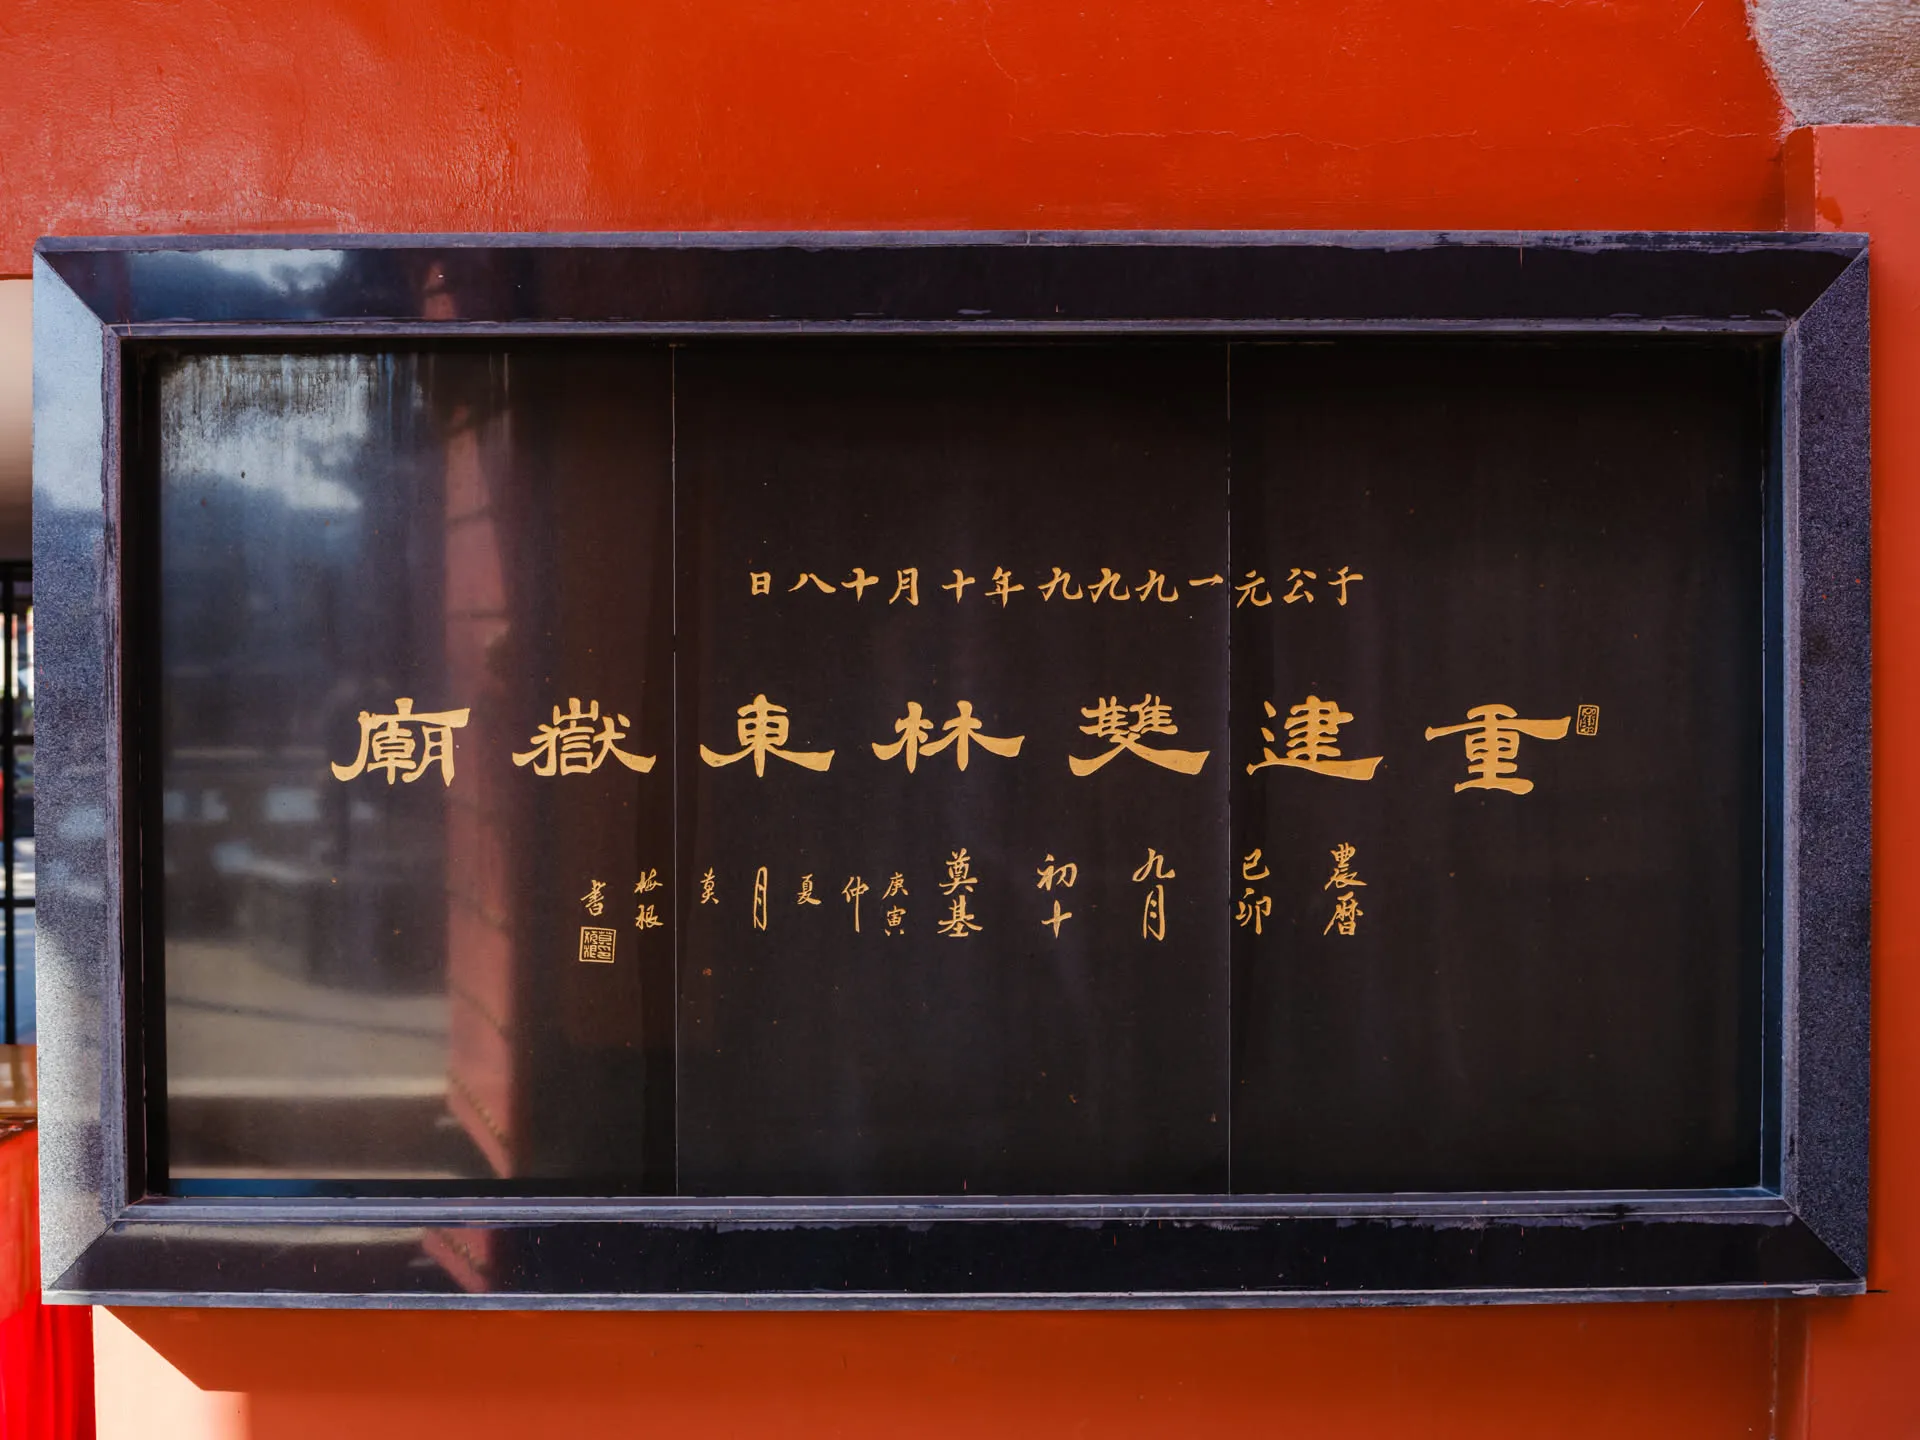 于公元一九九九年十月十八日
重建雙林東嶽廟
農曆己卯九月初十奠基
庚寅仲夏月莫梅根書